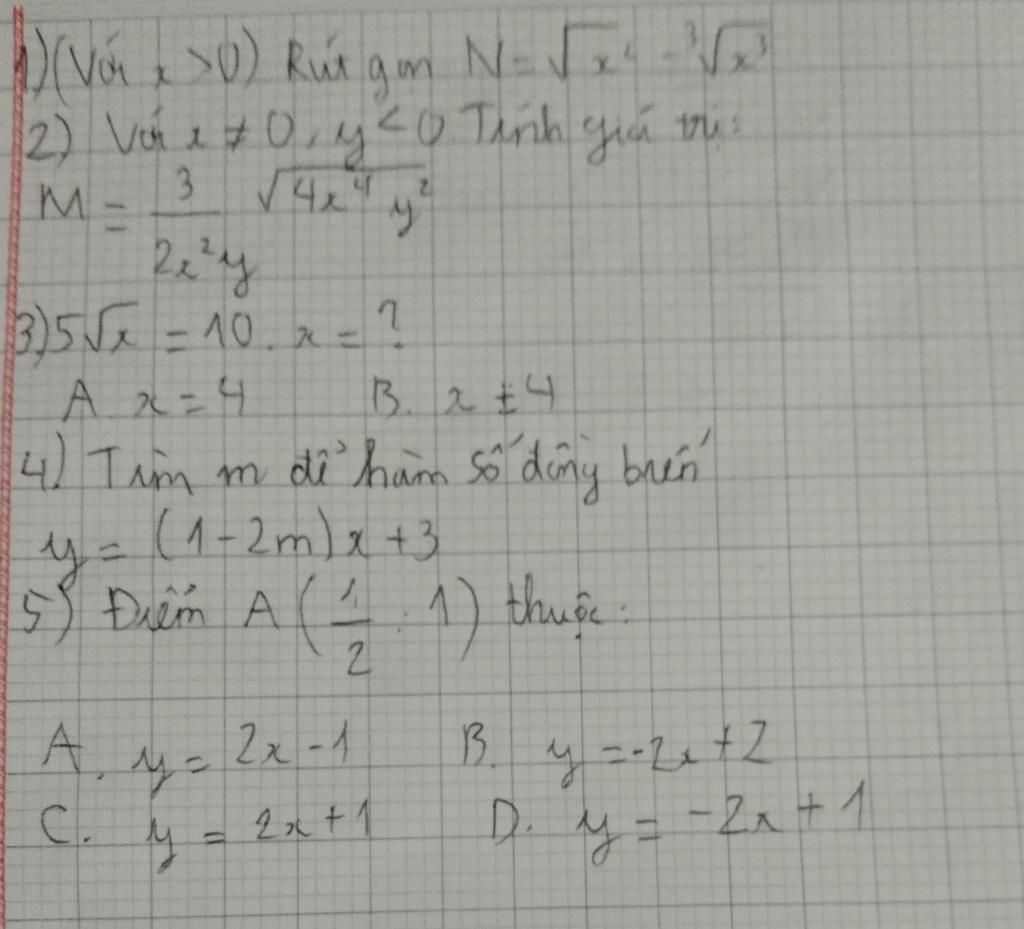 1) (Với x > 0) Rút gọn N = √x⁴ - ³√x³
2) Với x ≠ 0, y < 0 Tính giá trị:
M = 3/(2x²y) √(4x⁴y²)
3) 5√x = 10. x = ?
A. x = 4 B. x ± 4
4) Tìm m để hàm số đồng biến
y = (1 - 2m)x + 3
5) Điểm A (1/2 ; 1) thuộc:
A. y = 2x - 1 B. y = -2x + 2
C. y = 2x + 1 D. y = -2x + 1